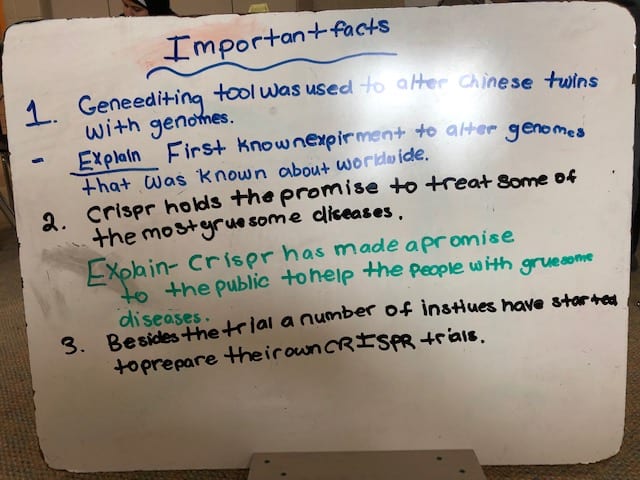 Important facts
1. Geneediting tool was used to alter Chinese twins
with genomes.
- Explain First knownexpirment to alter genomes
that was known about worldwide.
2. Crispr holds the promise to treat some of
the most gruesome diseases.
Explain- Crispr has made a promise
to the public to help the people with gruesome
diseases.
3. Besides the trial a number of instiues have started
to prepare their own CRISPR trials.